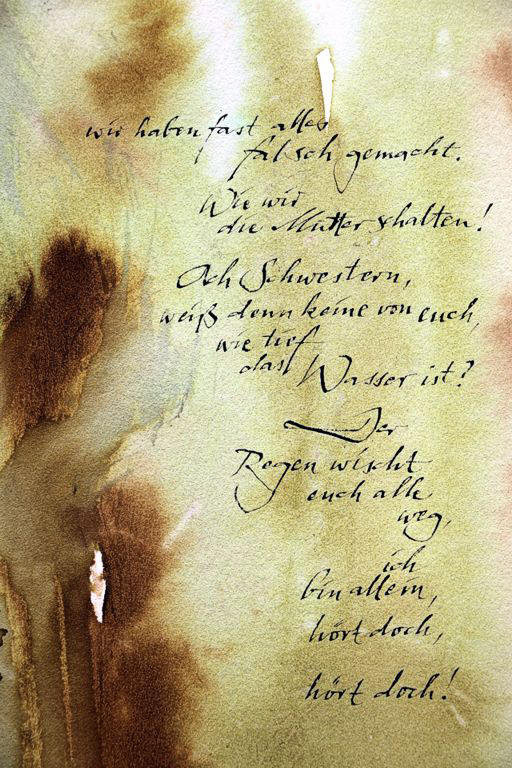 wir haben fast alles
falsch gemacht.
Wie wir
die Mutter schalten!
Ach Schwestern,
weiß denn keine von euch,
wie tief
das Wasser ist?
Der
Regen wischt
euch alle
weg,
ich
bin allein,
hört doch,
hört doch!